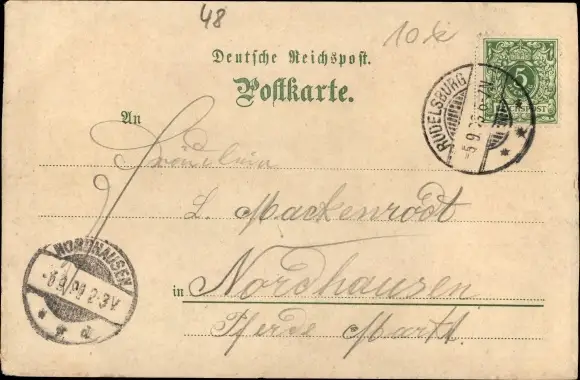 48
10
Deutsche Reichspost.
Postkarte.
5
REICHSPOST
RUDELSBURG
5.9.
An
Fräulein
L. Mackenrodt
in Nordhausen
Pferde Markt.
NORDHAUSEN
2-3V